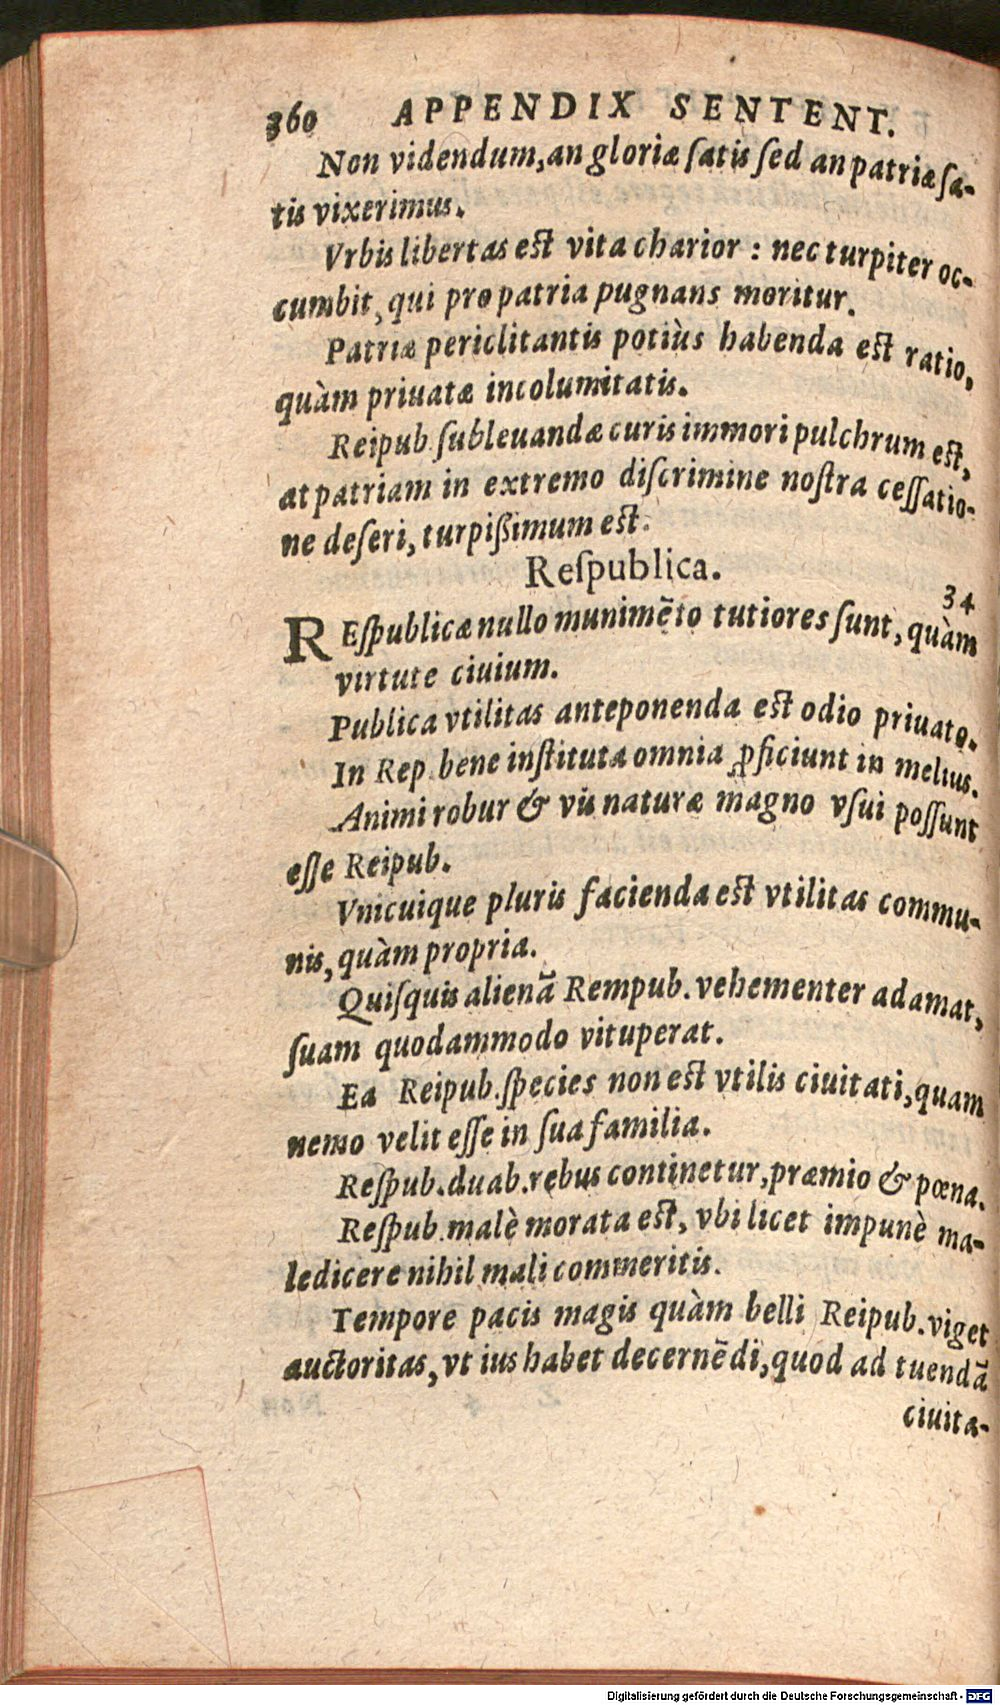 360 APPENDIX SENTENT.
Non videndum, an gloriæ ſatis ſed an patriæ ſa-
tis vixerimus.
Vrbis libertas eſt vita charior : nec turpiter oc-
cumbit, qui pro patria pugnans moritur.
Patriæ periclitantis potiùs habenda eſt ratio,
quàm priuatæ incolumitatis.
Reipub. ſubleuandæ curis immori pulchrum eſt,
at patriam in extremo diſcrimine noſtra ceſſatio-
ne deſeri, turpißimum eſt.
Reſpublica.
34
REſpublicæ nullo munimẽto tutiores ſunt, quàm
virtute ciuium.
Publica vtilitas anteponenda eſt odio priuato.
In Rep. bene inſtituta omnia ꝓficiunt in melius.
Animi robur & vis naturæ magno vſui poſſunt
eſſe Reipub.
Vnicuique pluris facienda eſt vtilitas commu-
nis, quàm propria.
Quiſquis alienã Rempub. vehementer adamat,
ſuam quodammodo vituperat.
Ea Reipub. ſpecies non est vtilis ciuitati, quam
nemo velit eſſe in ſua familia.
Reſpub. duab. rebus continetur, præmio & pœna.
Reſpub. malè morata eſt, vbi licet impunè ma-
ledicere nihil mali commeritis.
Tempore pacis magis quàm belli Reipub. viget
auctoritas, vt ius habet decernẽdi, quod ad tuendã
ciuita-
Digitalisierung gefördert durch die Deutsche Forschungsgemeinschaft - DFG